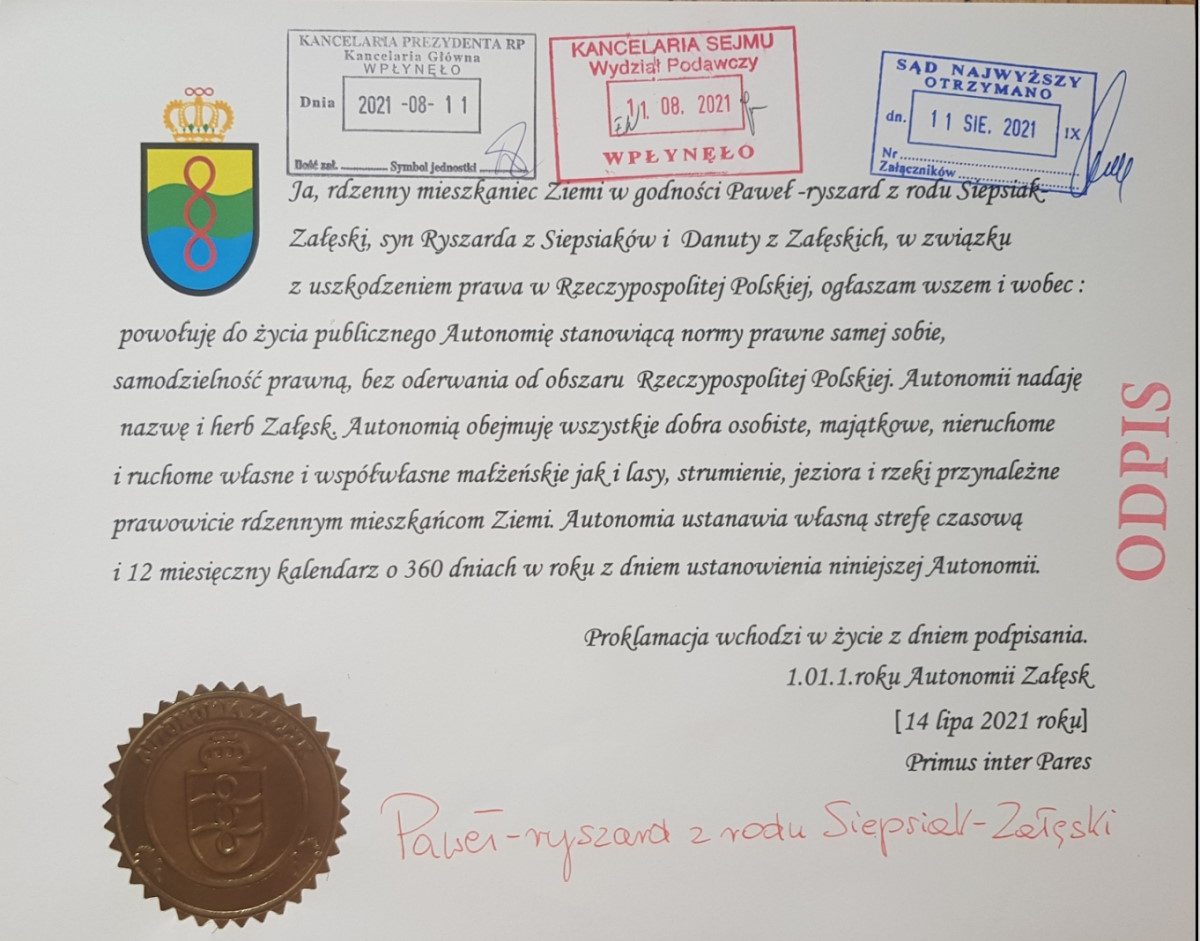 KANCELARIA PREZYDENTA RP
Kancelaria Główna
WPŁYNĘŁO
Dnia 2021 -08- 11
Ilość zał. ............ Symbol jednostki ............
KANCELARIA SEJMU
Wydział Podawczy
11. 08. 2021
WPŁYNĘŁO
SĄD NAJWYŻSZY
OTRZYMANO
dn. 11 SIE. 2021 IX
Nr ........................
Załączników ........................
Ja, rdzenny mieszkaniec Ziemi w godności Paweł -ryszard z rodu Siepsiak-
Załęski, syn Ryszarda z Siepsiaków i Danuty z Załęskich, w związku
z uszkodzeniem prawa w Rzeczypospolitej Polskiej, ogłaszam wszem i wobec :
powołuję do życia publicznego Autonomię stanowiącą normy prawne samej sobie,
samodzielność prawną, bez oderwania od obszaru Rzeczypospolitej Polskiej. Autonomii nadaję
nazwę i herb Załęsk. Autonomią obejmuję wszystkie dobra osobiste, majątkowe, nieruchome
i ruchome własne i współwłasne małżeńskie jak i lasy, strumienie, jeziora i rzeki przynależne
prawowicie rdzennym mieszkańcom Ziemi. Autonomia ustanawia własną strefę czasową
i 12 miesięczny kalendarz o 360 dniach w roku z dniem ustanowienia niniejszej Autonomii.
ODPIS
Proklamacja wchodzi w życie z dniem podpisania.
1.01.1.roku Autonomii Załęsk
[14 lipa 2021 roku]
Primus inter Pares
Paweł-ryszard z rodu Siepsiak-Załęski
AUTONOMIA ZAŁĘSK